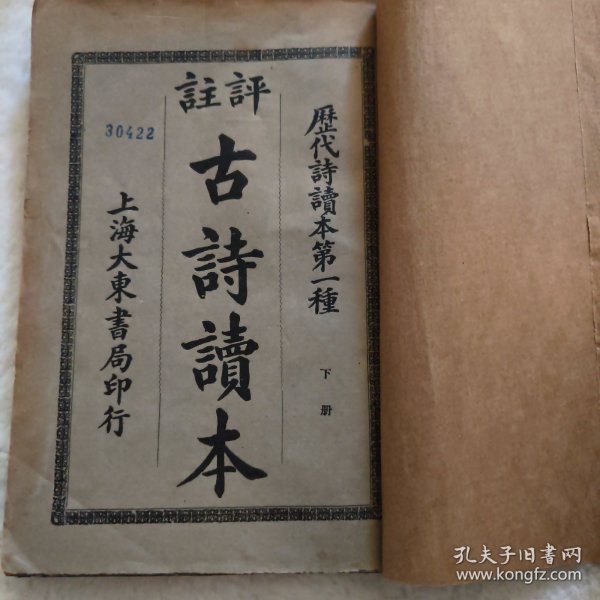 歷代詩讀本第一種
下册
評註
古詩讀本
30422
上海大東書局印行
孔夫子旧书网
www.kongfz.com